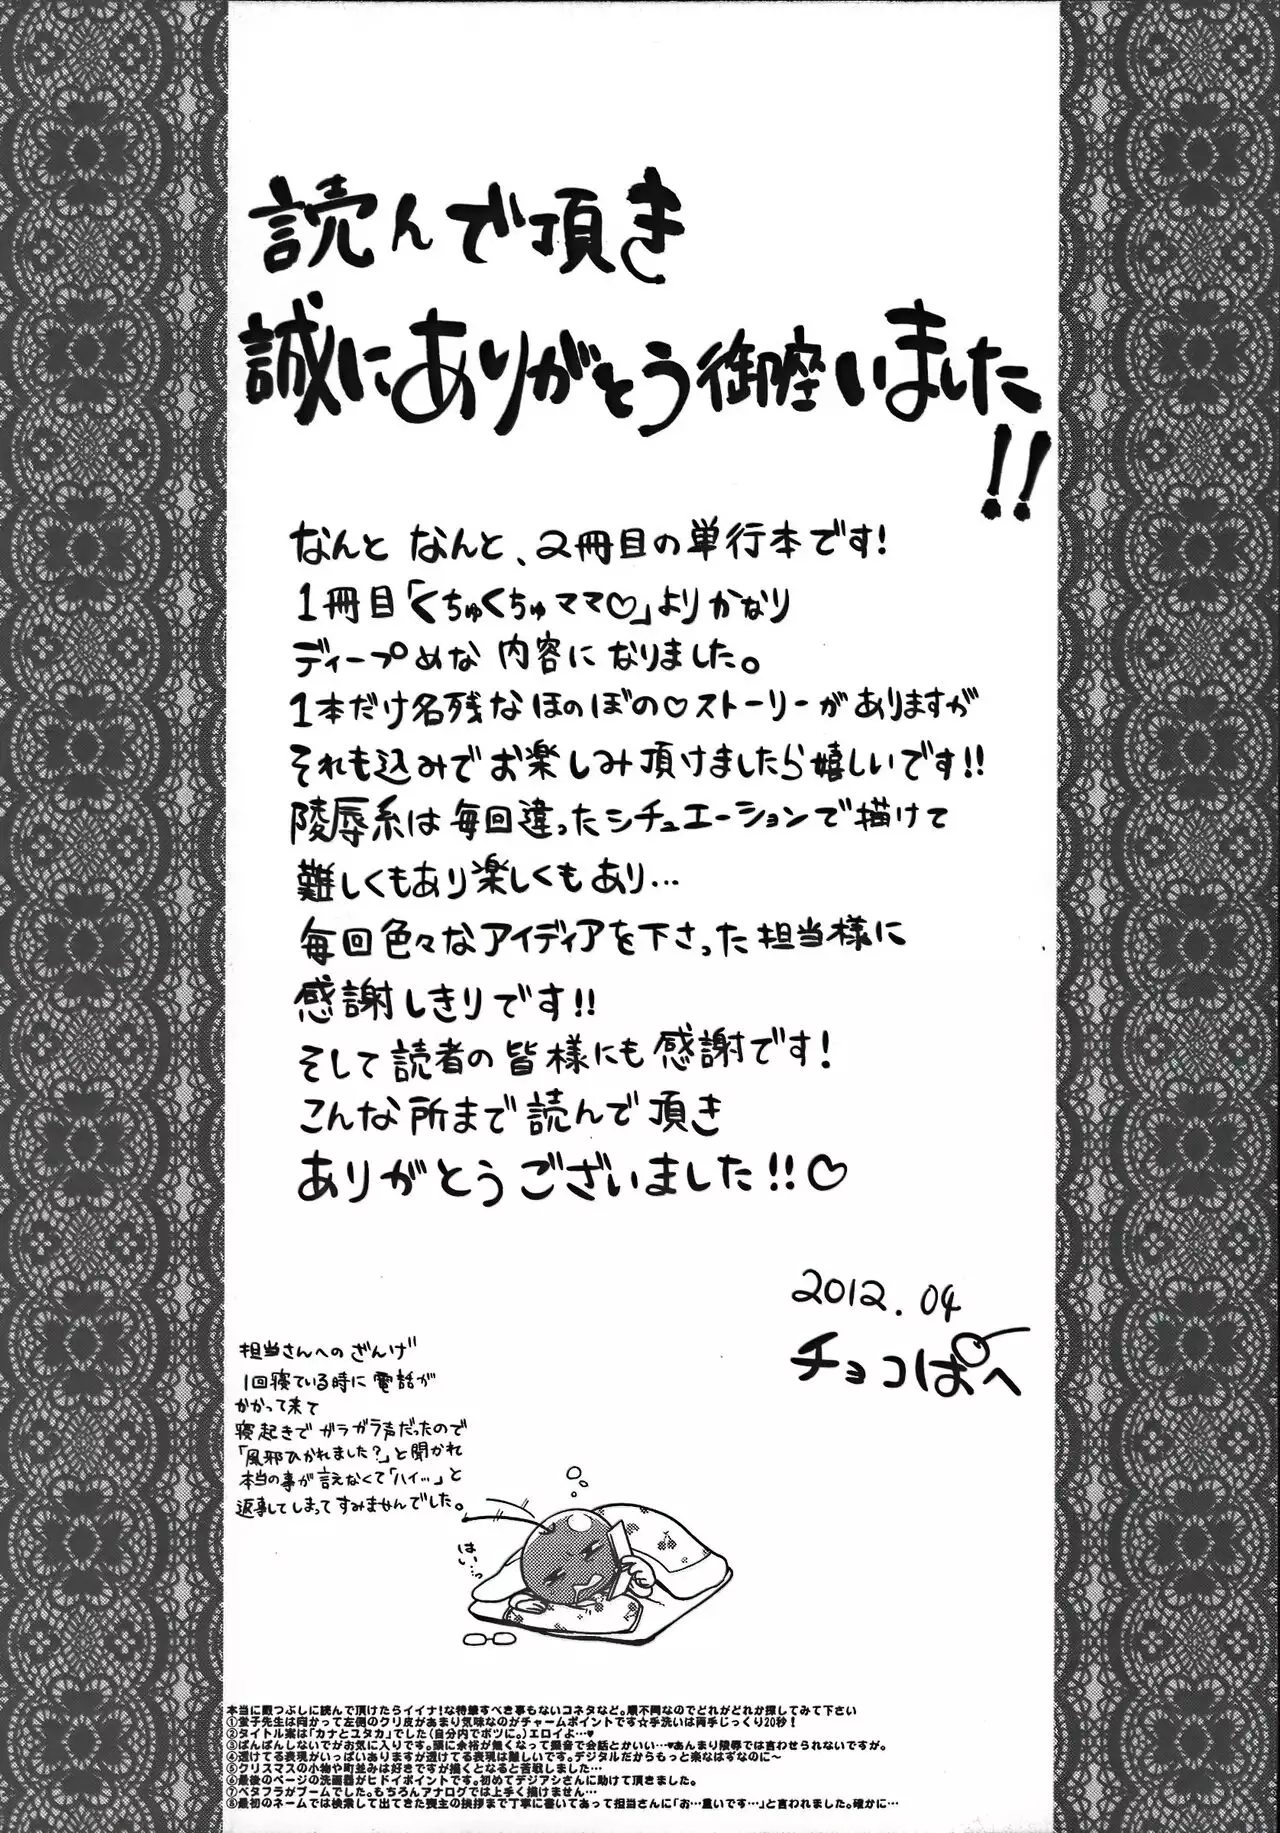 読んで頂き
誠にありがとう御座いました!!
なんと なんと、2冊目の単行本です!
1冊目「くちゅくちゅママ♡」よりかなり
ディープめな 内容になりました。
1本だけ名残なほのぼの♡ストーリーがありますが
それも込みでお楽しみ頂けましたら嬉しいです!!
陵辱系は毎回違ったシチュエーションで描けて
難しくもあり楽しくもあり…
毎回色々なアイディアを下さった担当様に
感謝しきりです!!
そして読者の皆様にも感謝です!
こんな所まで読んで頂き
ありがとうございました!!♡
2012.04
チョコぱへ
担当さんへのざんげ
1回寝ている時に電話が
かかって来て
寝起きでガラガラ声だったので
「風邪ひかれました?」と聞かれ
本当の事が言えなくて「ハイ…」と
返事してしまってすみませんでした。
はい…っ
本当に暇つぶしに読んで頂けたらイイナ!な特筆すべき事もないコネタなど。順不同なのでどれがどれか探してみて下さい
①蛍子先生は向かって左側のクリ皮があまり気味なのがチャームポイントです☆手洗いは両手じっくり20秒!
②タイトル案は「カナとユタカ」でした(自分内でボツに。)エロイド…♥
③ぱんぱんしないでがお気に入りです。頭に余裕が無くなって擬音で会話とかいい…♥あんまり陵辱では言わせられないですが。
④透けてる表現がいっぱいありますが透けてる表現は難しいです。デジタルだからもっと楽なはずなのに〜
⑤クリスマスの小物や町並みは好きですが描くとなると苦戦しました…
⑥最後のページの洗面器がヒドイポイントです。初めてデジアシさんに助けて頂きました。
⑦ベタフラがブームでした。もちろんアナログでは上手く描けません…
⑧最初のネームでは検索して出てきた喪主の挨拶まで丁寧に書いてあって担当さんに「お…重いです…」と言われました。確かに…